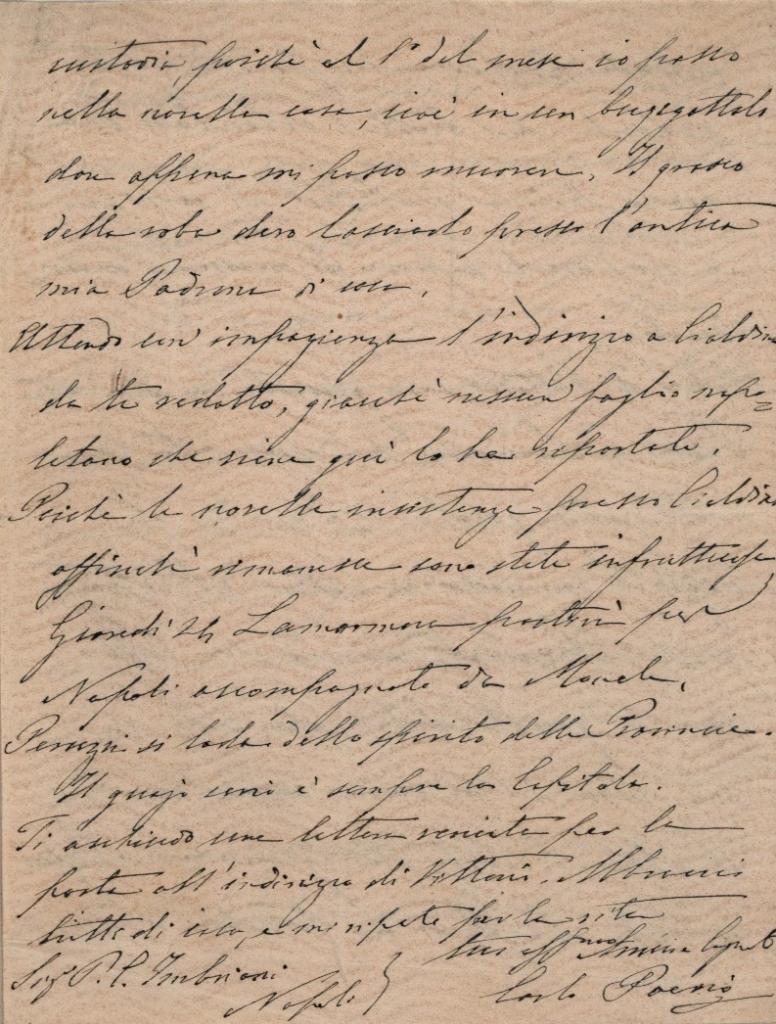 custodia, poichè al 1° del mese io passo
nella novella casa, cioè in un bugigattolo
dove appena mi posso muovere. Il grosso
della roba devo lasciarlo presso l'antica
mia Padrona di casa.
Attendo con impazienza l'indirizzo a Cialdini
da te redatto, giacchè nessun foglio napo=
letano che viene quì lo ha riportato.
Poichè le novelle insistenze presso Cialdini
affinchè rimanesse sono state infruttuose
Giovedì 24 Lamarmora partirà per
Napoli accompagnato da
Peruzzi si loda dello spirito delle Provincie.
Il guajo serio è sempre la Capitale.
Ti acchiudo una lettera venuta per la
posta all'indirizzo di Vittorio. Abbraccia
tutti di casa, e mi ripeto per la vita
tuo aff.mo Amico
Sig. P. E. Imbriani
Napoli
Carlo Poerio